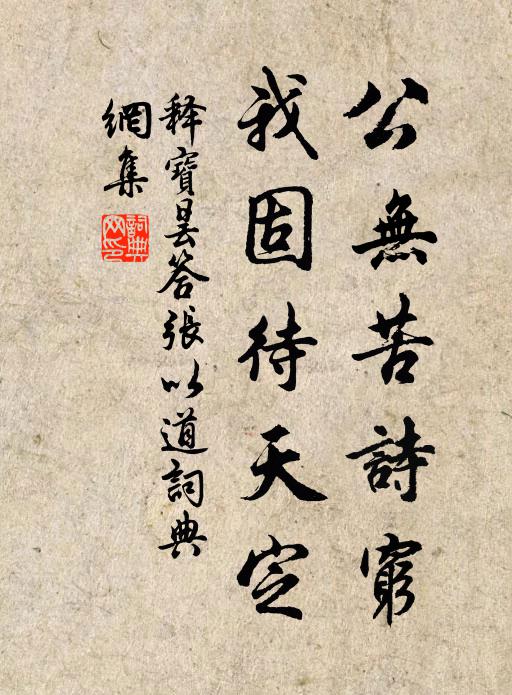 公無苦詩窮
我固待天定
释寶昙答張以道詞典
網集
詞典網印